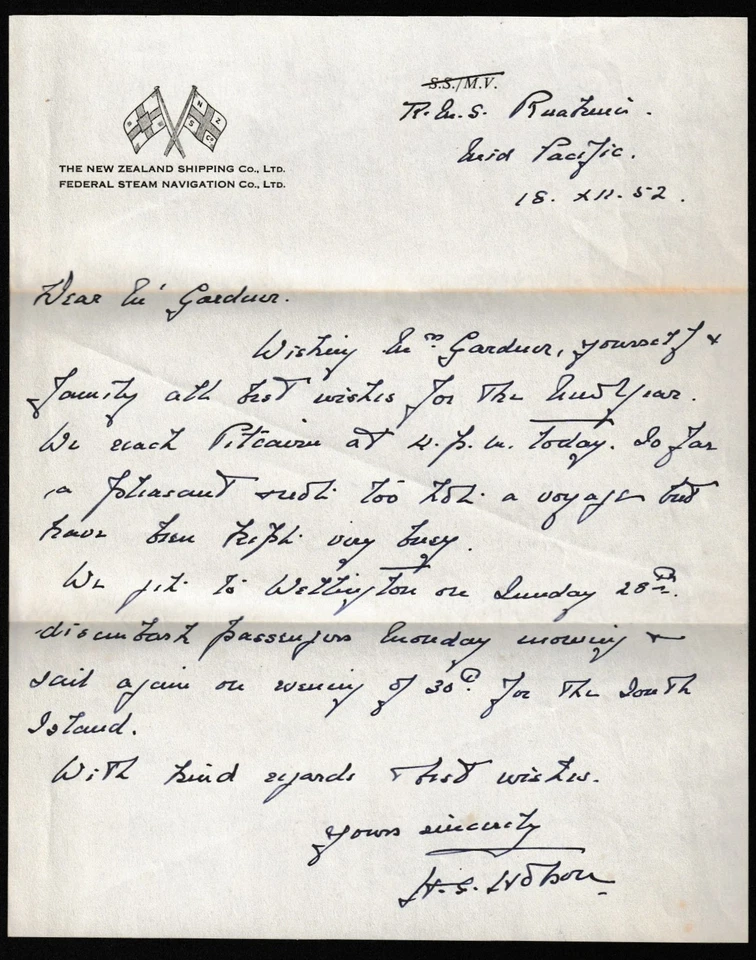 S.S./M.V.
R.M.S. Ruahine.
Mid Pacific.
18. XII. 52.
N Z
S Co
THE NEW ZEALAND SHIPPING Co., LTD.
FEDERAL STEAM NAVIGATION Co., LTD.
Dear Mr Gardner.
Wishing Mrs Gardner, yourself &
family all best wishes for the New Year.
We reach Pitcairn at 4.p.m. today. So far
a pleasant & not too hot a voyage but
have been kept very busy.
We get to Wellington on Sunday 28th.
disembark passengers Monday morning &
sail again on evening of 30th for the South
Island.
With kind regards & best wishes.
Yours sincerely
H.S.